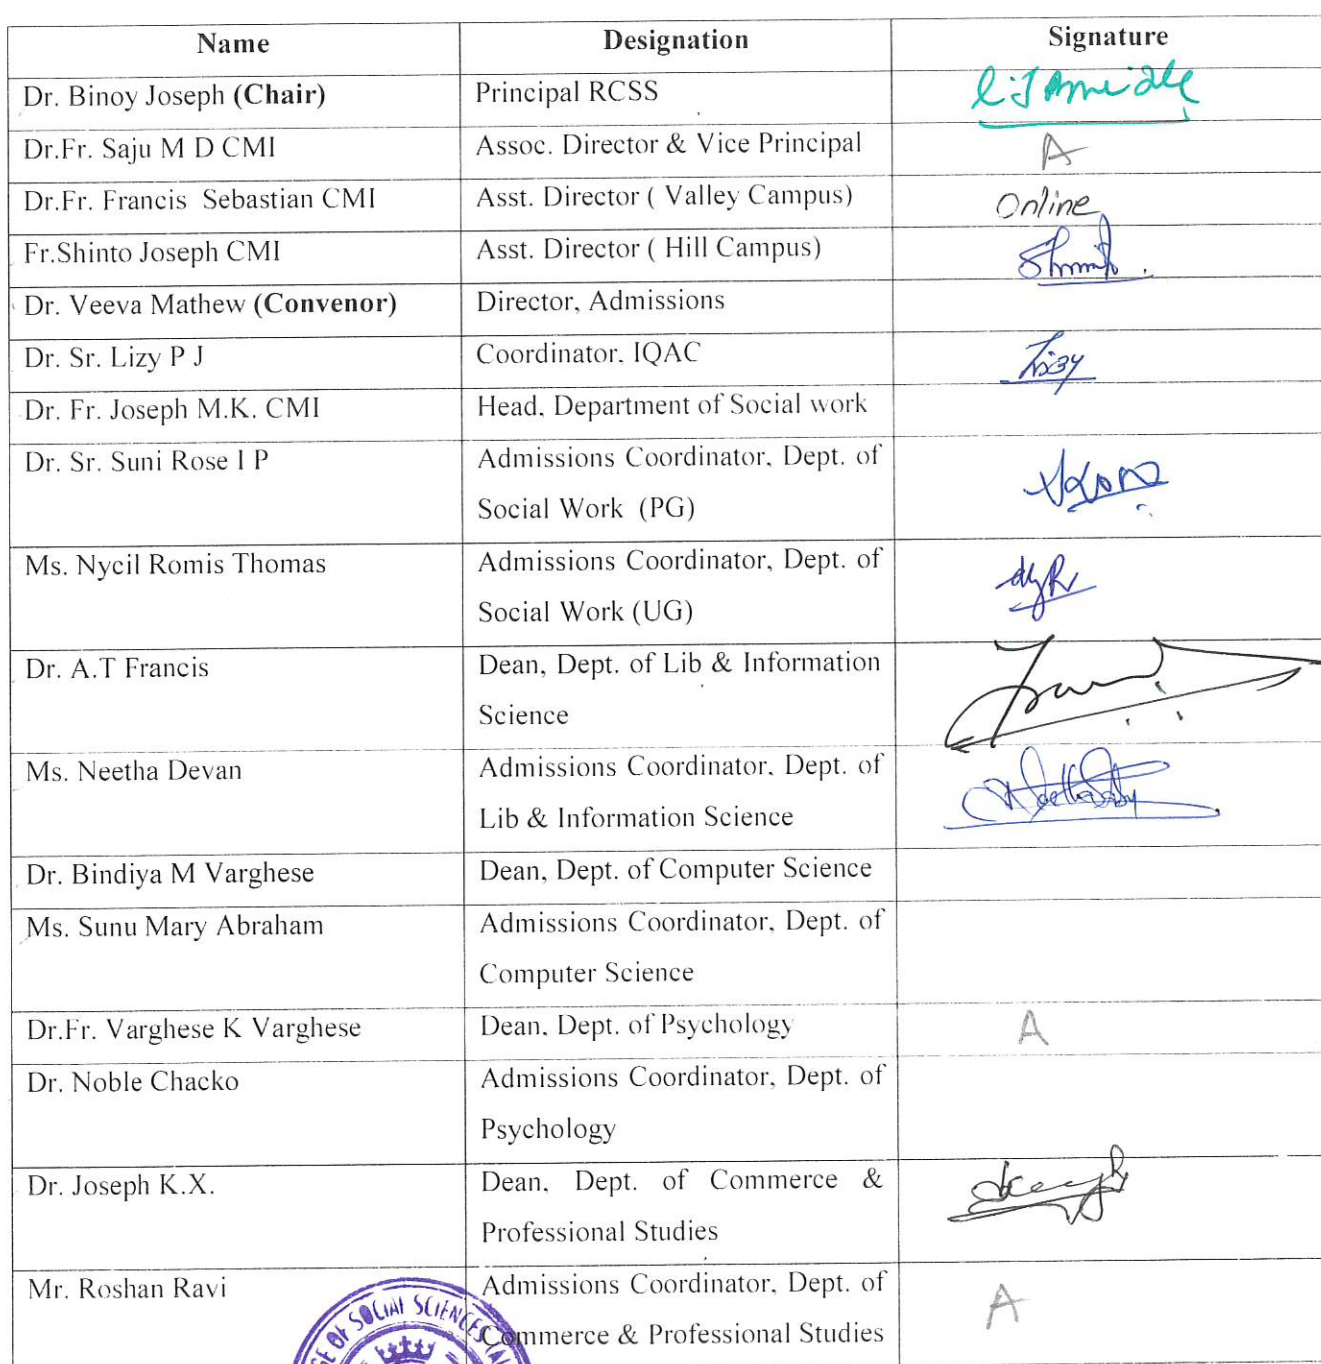 Name Designation Signature
Dr. Binoy Joseph (Chair) Principal RCSS
Dr.Fr. Saju M D CMI Assoc. Director & Vice Principal A
Dr.Fr. Francis Sebastian CMI Asst. Director ( Valley Campus) Online
Fr.Shinto Joseph CMI Asst. Director ( Hill Campus)
Dr. Veeva Mathew (Convenor) Director, Admissions
Dr. Sr. Lizy P J Coordinator, IQAC Lizy
Dr. Fr. Joseph M.K. CMI Head, Department of Social work
Dr. Sr. Suni Rose I P Admissions Coordinator, Dept. of
Social Work (PG)
Ms. Nycil Romis Thomas Admissions Coordinator, Dept. of
Social Work (UG)
Dr. A.T Francis Dean, Dept. of Lib & Information
Science
Ms. Neetha Devan Admissions Coordinator, Dept. of
Lib & Information Science
Dr. Bindiya M Varghese Dean, Dept. of Computer Science
Ms. Sunu Mary Abraham Admissions Coordinator, Dept. of
Computer Science
Dr.Fr. Varghese K Varghese Dean, Dept. of Psychology A
Dr. Noble Chacko Admissions Coordinator, Dept. of
Psychology
Dr. Joseph K.X. Dean, Dept. of Commerce &
Professional Studies
Mr. Roshan Ravi Admissions Coordinator, Dept. of A
Commerce & Professional Studies
OF SOCIAL SCIENCES